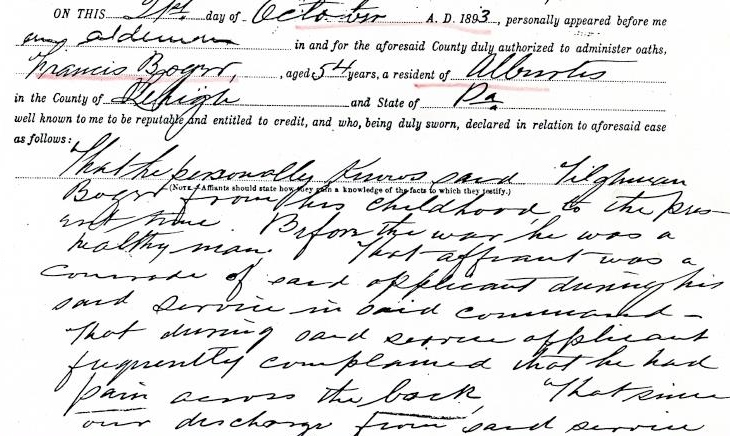 ON THIS 21st day of October A. D. 1893, personally appeared before me
any alderman in and for the aforesaid County duly authorized to administer oaths,
Francis Boger, , aged 54 years, a resident of Alburtis
in the County of Lehigh and State of Pa
well known to me to be reputable and entitled to credit, and who, being duly sworn, declared in relation to aforesaid case
as follows:
That he personally knows said Tilghman
(NOTE.—Affiants should state how they gain a knowledge of the facts to which they testify.)
Boger from his childhood to the pres-
ent time. Before the war he was a
healthy man. That affiant was a
comrade of said applicant during his
said service in said command –
That during said service applicant
frequently complained that he had
pain across the back, That since
our discharge from said service